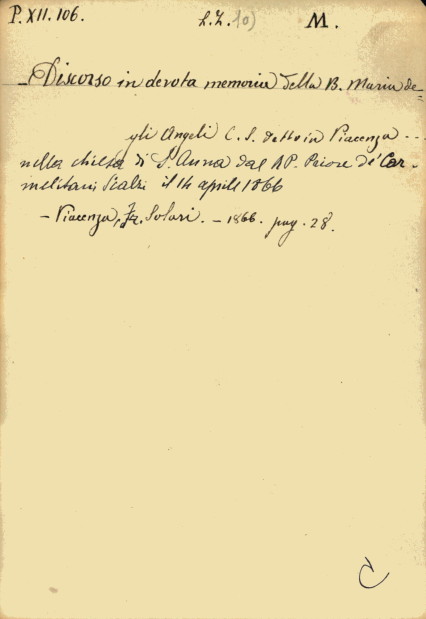 P. XII. 106. L. Z. 10) M.
Discorso in devota memoria della B. Maria de-
gli Angeli C. S. detto in Piacenza ...
nella chiesa di S. Anna dal P. Priore de' Car-
melitani Scalzi il 14 aprile 1866
- Piacenza, Solari. - 1866. pag. 28.
C